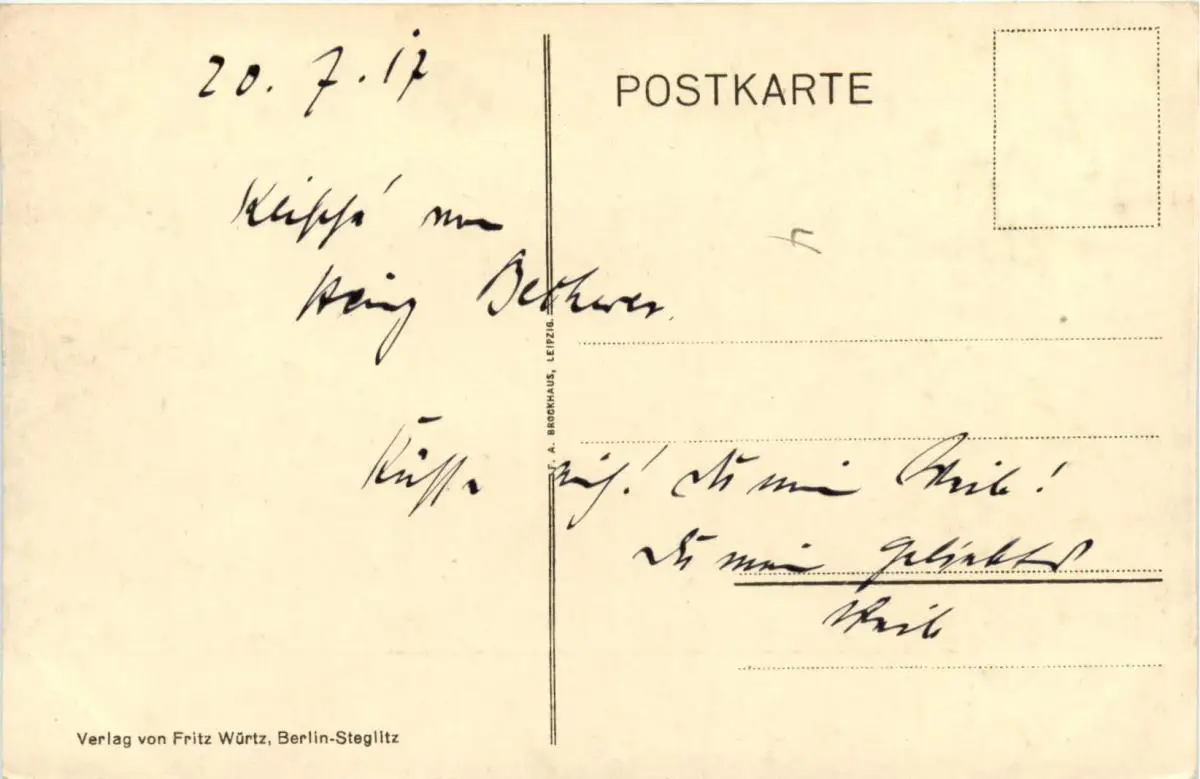 20.7.17
POSTKARTE
Klisché von
Heinz
F. A. BROCKHAUS, LEIPZIG.
Küsse mich! Du mein Weib!
Du mein geliebtes
Weib
Verlag von Fritz Würtz, Berlin-Steglitz